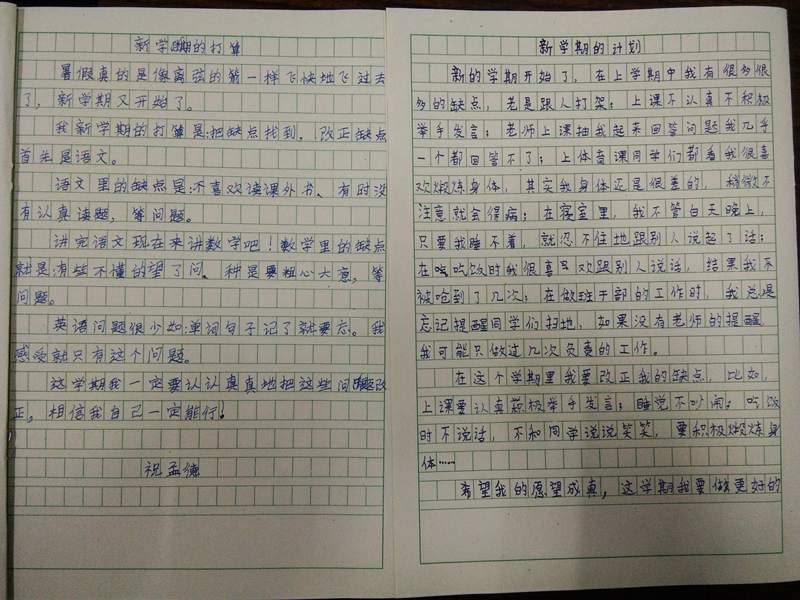 新学期的打算
暑假真的是像离弦的箭一样飞快地飞过去
了，新学期又开始了。
我新学期的打算是：把缺点找到，改正缺点
首先是语文。
语文里的缺点是：不喜欢读课外书、有时没
有认真读题，等问题。
讲完语文现在来讲数学吧！数学里的缺点
就是：有些不懂的望了问、种是要粗心大意，等
问题。
英语问题很少如：单词句子记了就要忘。我
感受就只有这个问题。
这学期我一定要认认真真地把这些问题改
正，相信我自己一定能行！
祝孟德
新学期的计划
新的学期开始了，在上学期中我有很多很
多的缺点，老是跟人打架；上课不认真不积极
举手发言；老师上课抽我起来回答问题我几乎
一个都回答不了；上体育课同学们都看我很喜
欢煅炼身体，其实我身体还是很差的，稍微不
注意就会得病；在寝室里，我不管白天晚上，
只要我睡不着，就忍不住地跟别人说起了话；
在吃饭时我很喜欢跟别人说话，结果我不
被呛到了几次；在做班干部的工作时，我总是
忘记提醒同学们扫地，如果没有老师的提醒
我可能只做过几次负责的工作。
在这个学期里我要改正我的缺点，比如，
上课要认真积极举手发言；睡觉不吵闹；吃饭
时不说话，不和同学说说笑笑，要积极煅炼身
体……
希望我的愿望成真，这学期我要做更好的